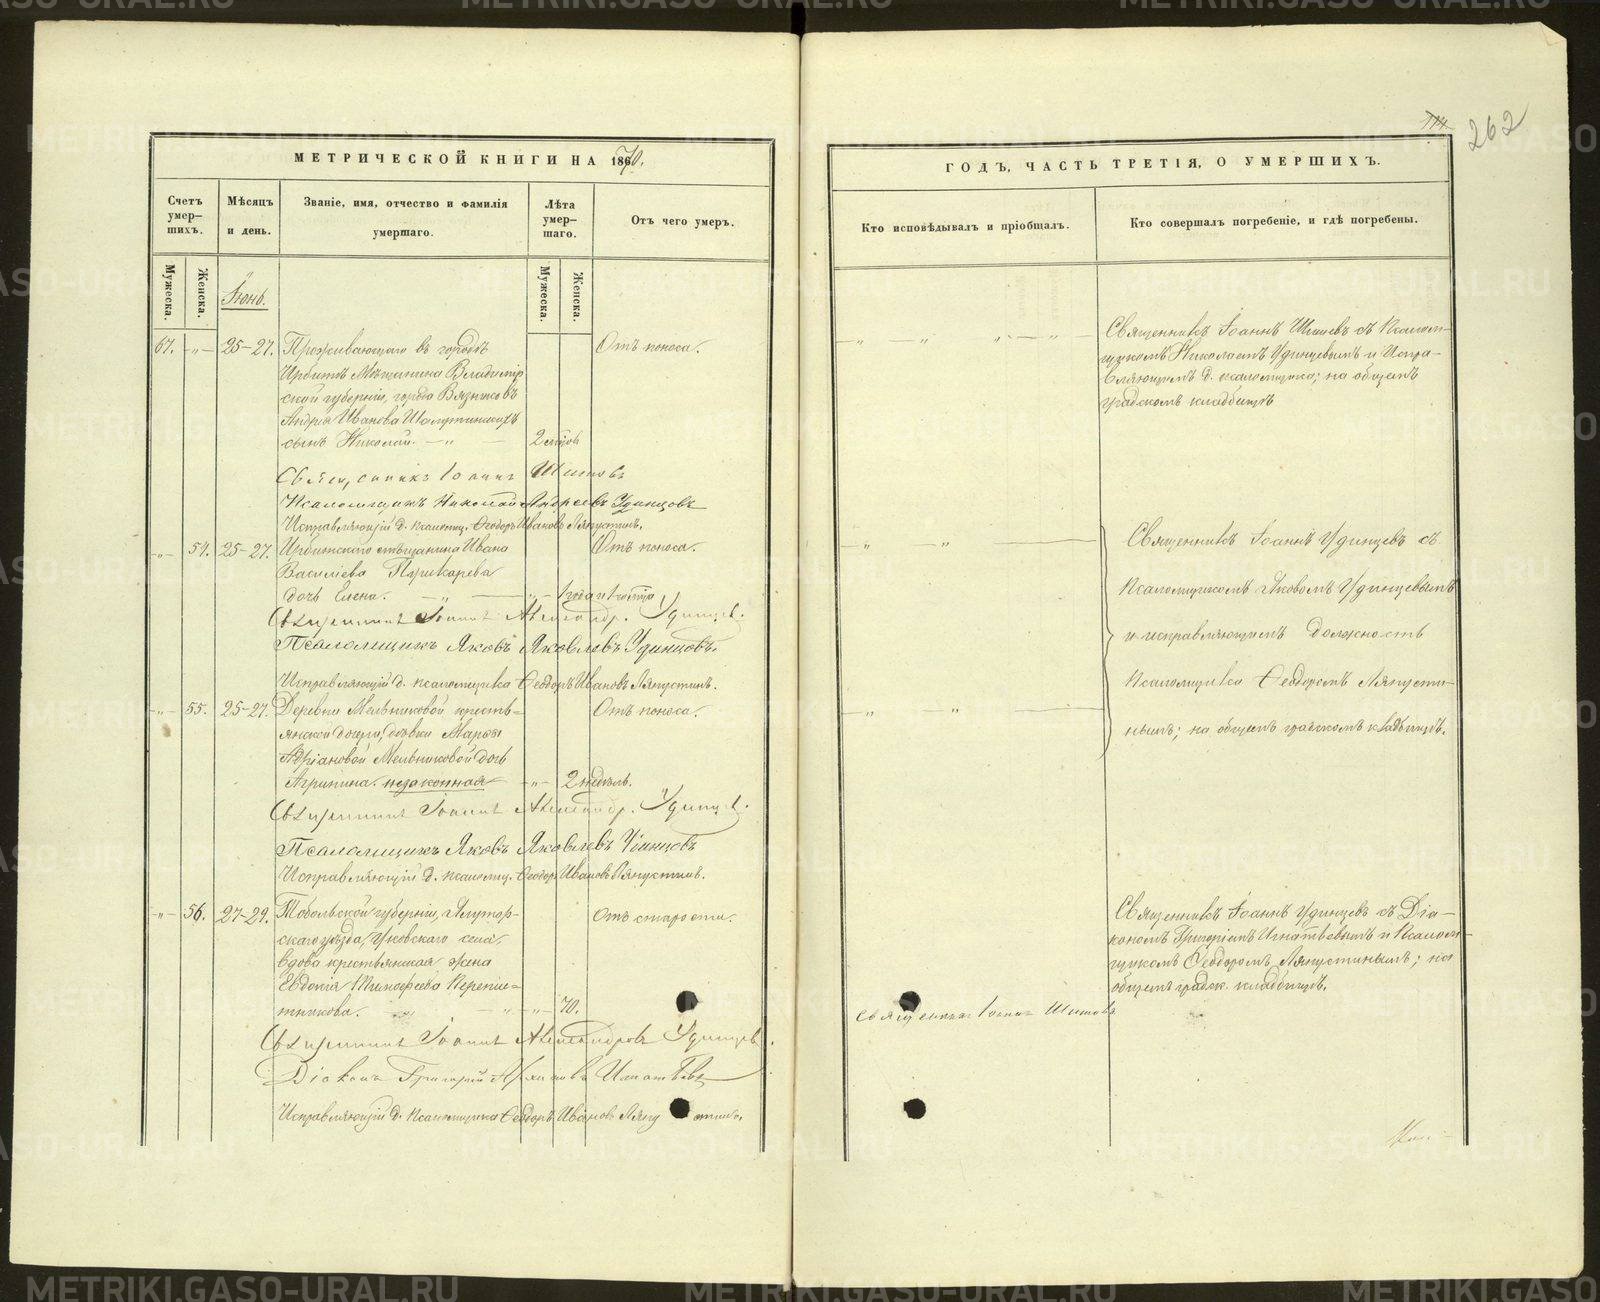 МЕТРИЧЕСКОЙ КНИГИ НА 1870.
Счетъ умер-шихъ.
Мужеска.
Женска.
Мѣсяцъ и день.
Званіе, имя, отчество и фамилія умершаго.
Лѣта умер-шаго.
Мужеска.
Женска.
Отъ чего умеръ.
Іюнь.
67. -"- 25-27. Проживающаго въ городѣ Отъ поноса.
Ирбитѣ Мѣщанина Владимір
ской губерніи, города Вязниковъ
Андрея Иванова
сынъ Николай. 2 мѣсяцов
Священникъ Іоаннъ Шишевъ
Псаломщикъ Николай Андреевъ Удинцовъ
Исправляющій д. псаломщ. Ѳеодоръ Ивановъ Ляпустинъ.
-"- 54. 25-27. Ирбитскаго мѣщанина Ивана Отъ поноса.
Василіева
дочь Елена. 1 года и
Священникъ Іоаннъ Александр. Удинцев.
Псаломщикъ Яковъ Яковлевъ Удинцовъ.
Исправляющій д. псаломщика Ѳеодоръ Ивановъ Ляпустинъ.
-"- 55. 25-27. Деревни Мельниковой кресть- Отъ поноса.
янской дочери, дѣвки Марѳы
Адріановой Мельниковой дочь
Агрипина. незаконная -"- 2 недѣль.
Священникъ Іоаннъ Александр. Удинцев.
Псаломщикъ Яковъ Яковлевъ Удинцовъ
Исправляющій д. псаломщ. Ѳеодор Ивановъ Ляпустинъ.
-"- 56. 27-29. Тобольской губерніи, Ялутор- Отъ старости.
скаго уѣзда, Уковскаго села,
вдова крестьянская жена
Евдокія Тимоѳеева Перепе-
тчикова. -"- 70.
Священникъ Іоаннъ Александровъ Удинцев.
Діаконъ Григорій Игнатьевъ
Исправляющій д. Псаломщика Ѳеодоръ Ивановъ Ляпустинъ.
114
262
ГОДЪ, ЧАСТЬ ТРЕТІЯ, О УМЕРШИХЪ.
Кто исповѣдывалъ и пріобщалъ.
Кто совершалъ погребеніе, и гдѣ погребены.
Священникъ Іоаннъ Шишевъ съ Псалом-
щикомъ Николаемъ Удинцевымъ и Испра-
вляющимъ д. псаломщика; на общемъ
градскомъ кладбищѣ
Священникъ Іоаннъ Удинцевъ съ
Псаломщикомъ Яковомъ Удинцевымъ
и исправляющимъ должность
Псаломщика Ѳеодоромъ Ляпусти-
нымъ; на общемъ градскомъ кладбищѣ.
Священникъ Іоаннъ Удинцевъ съ Діа-
кономъ Григоріемъ Игнатьевымъ и Псалом-
щикомъ Ѳеодоромъ Ляпустинымъ; на
общемъ градск. кладбищѣ.
Священникъ Іоаннъ Шишевъ
METRIKI.GASO-URAL.RU